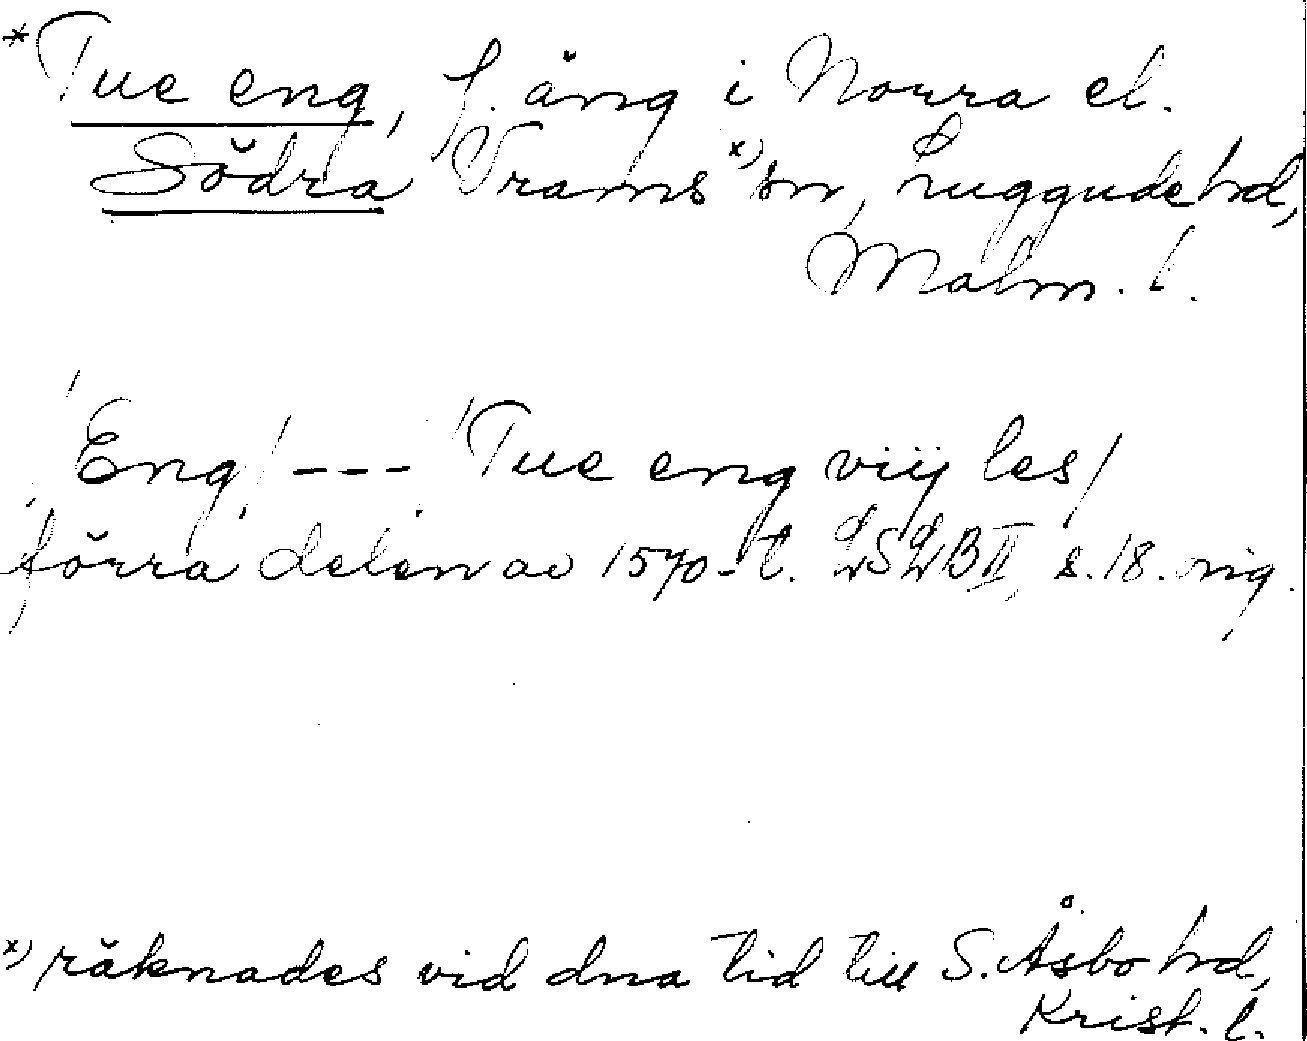 *Tue eng, f. äng i Norra el.
Södra Vrams x) sn, Luggude hd,
Malm. l.
/Eng/ --- /Tue eng viij les/
förra delen av 1570-t. LSLB II, s. 18. orig.
x) räknades vid dna tid till S. Åsbo hd,
Krist. l.